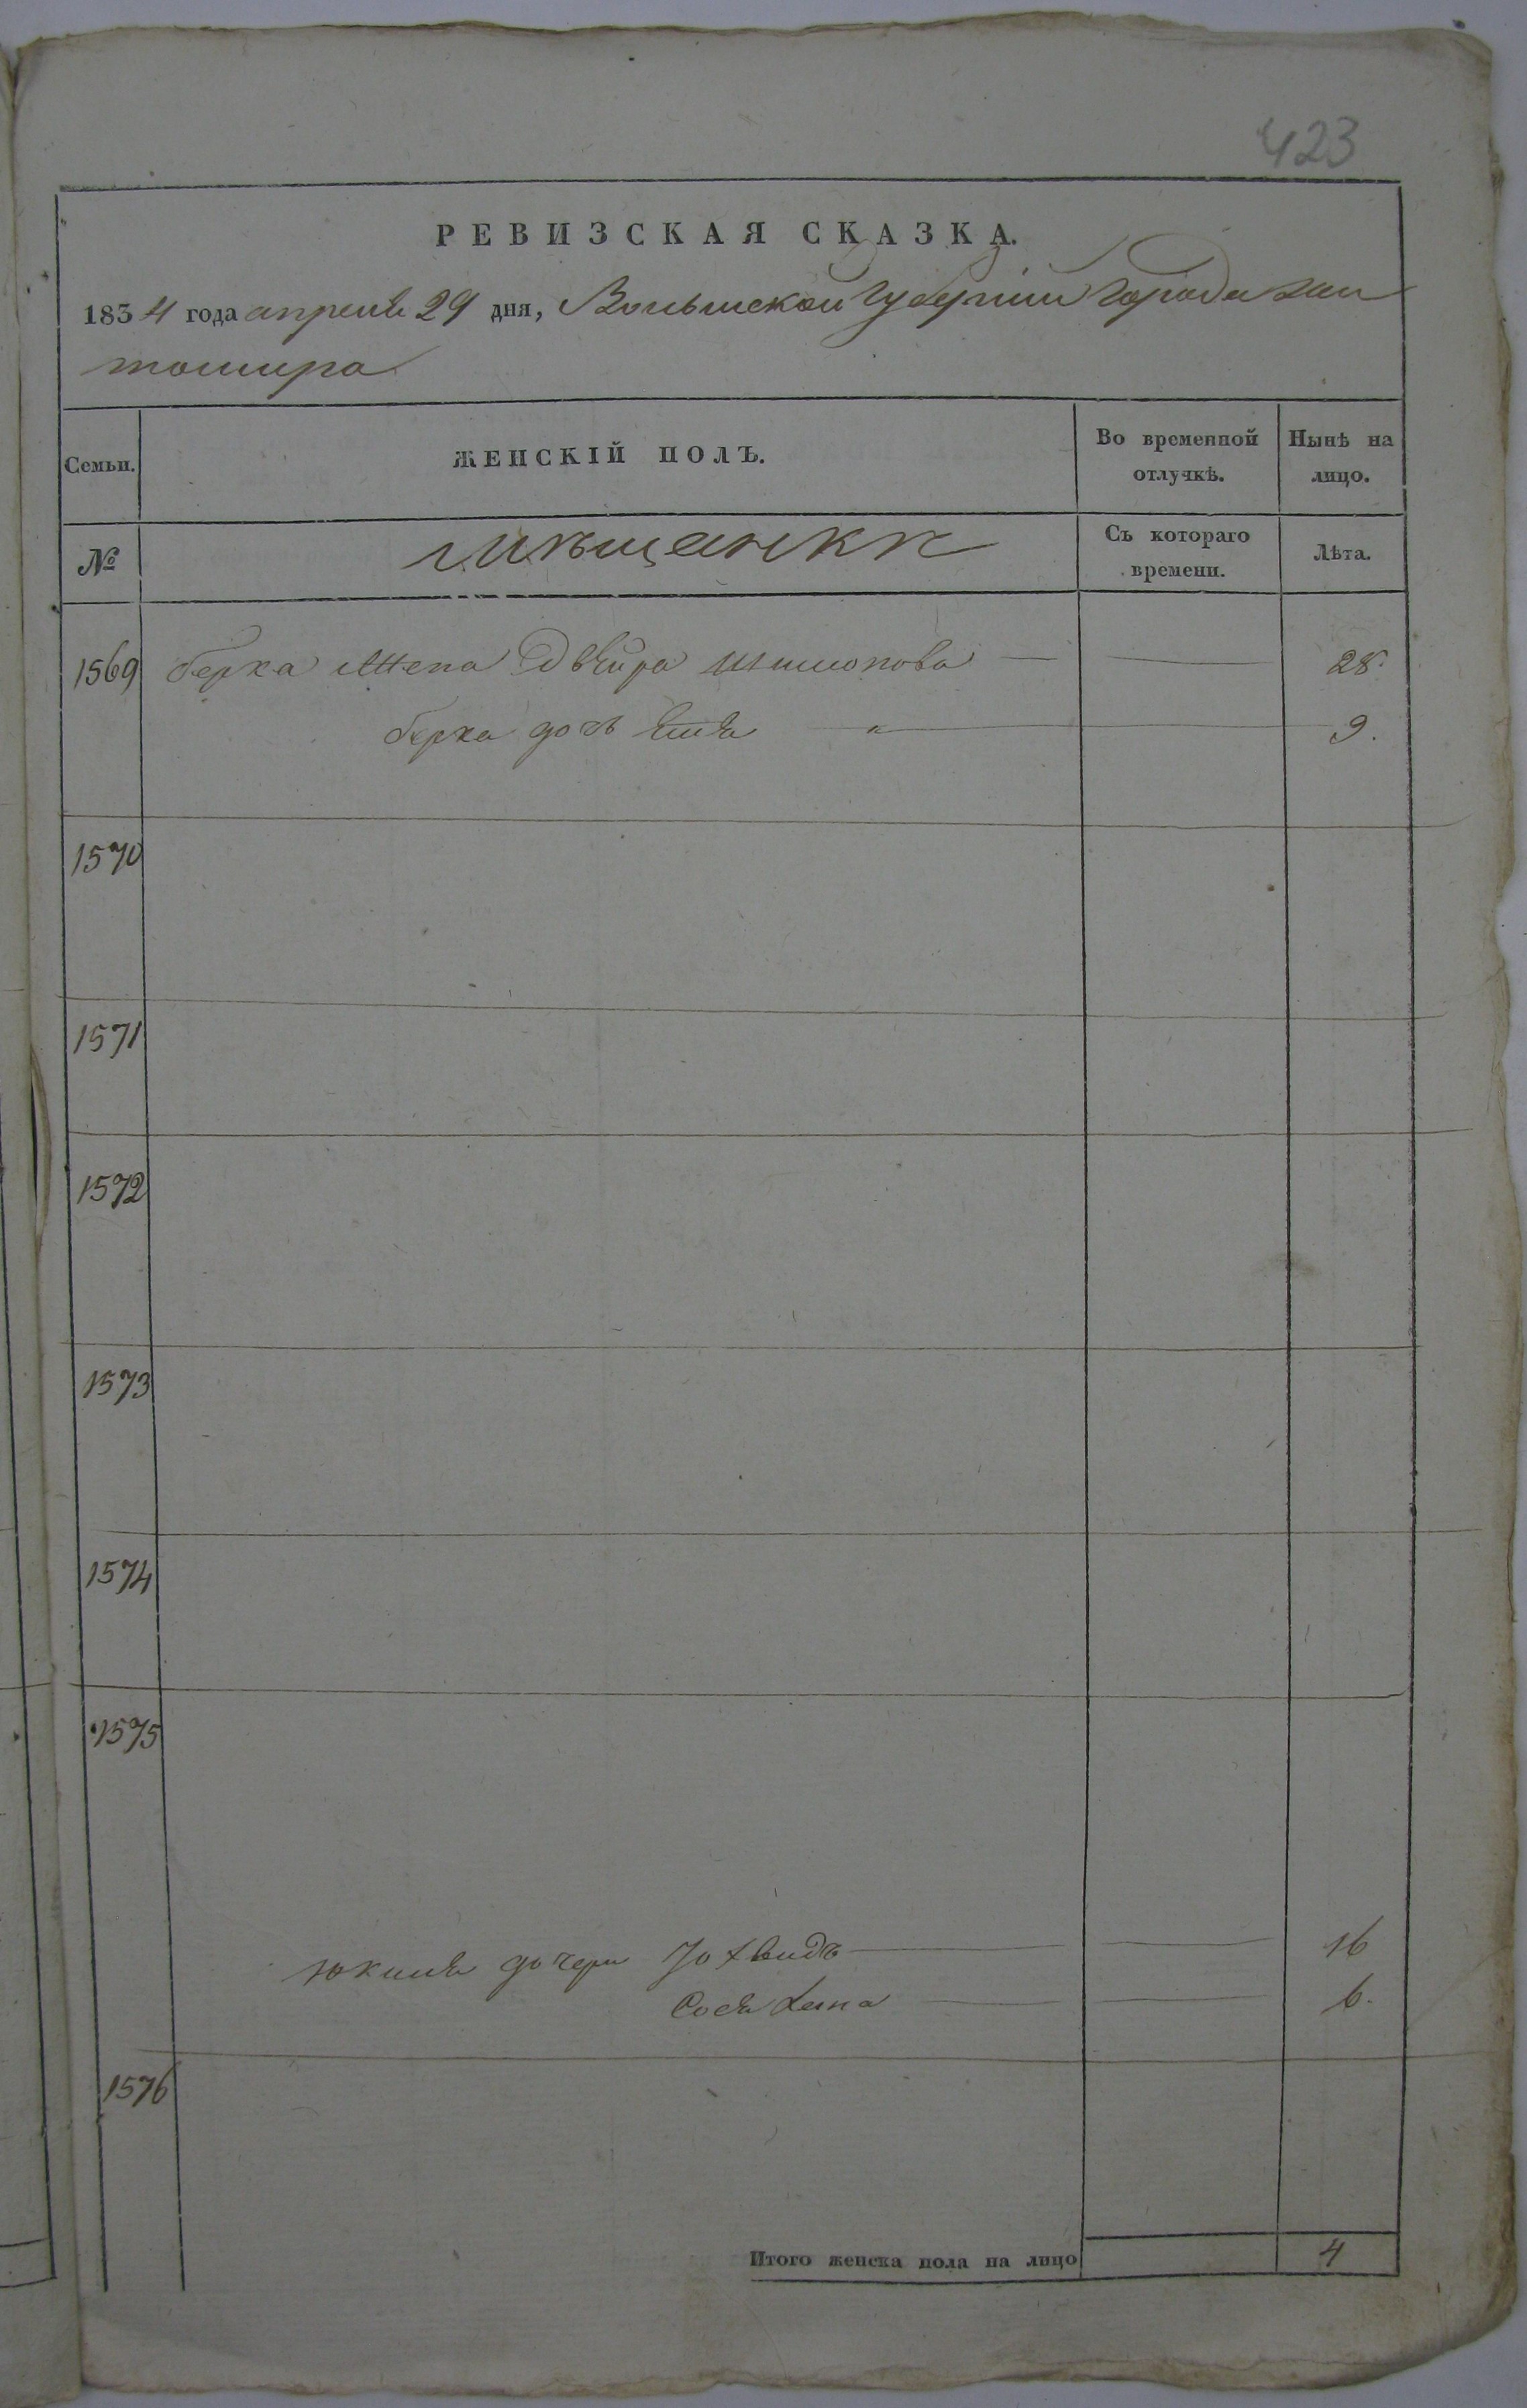 423
РЕВИЗСКАЯ СКАЗКА.
1834 года апреля 29 дня, Волынской Губернии города Жи
томира
Семьи.
ЖЕНСКІЙ ПОЛЪ.
Во временной отлучкѣ.
Нынѣ на лицо.
№
мѣщанки
Съ котораго времени.
Лѣта.
1569 берка жена Двейра Шимонова — — 28.
берка дочь — 9.
1570
1571
1572
1573
1574
1575
дочери — — 16
Сося — — 6.
1576
Итого женска пола на лицо 4